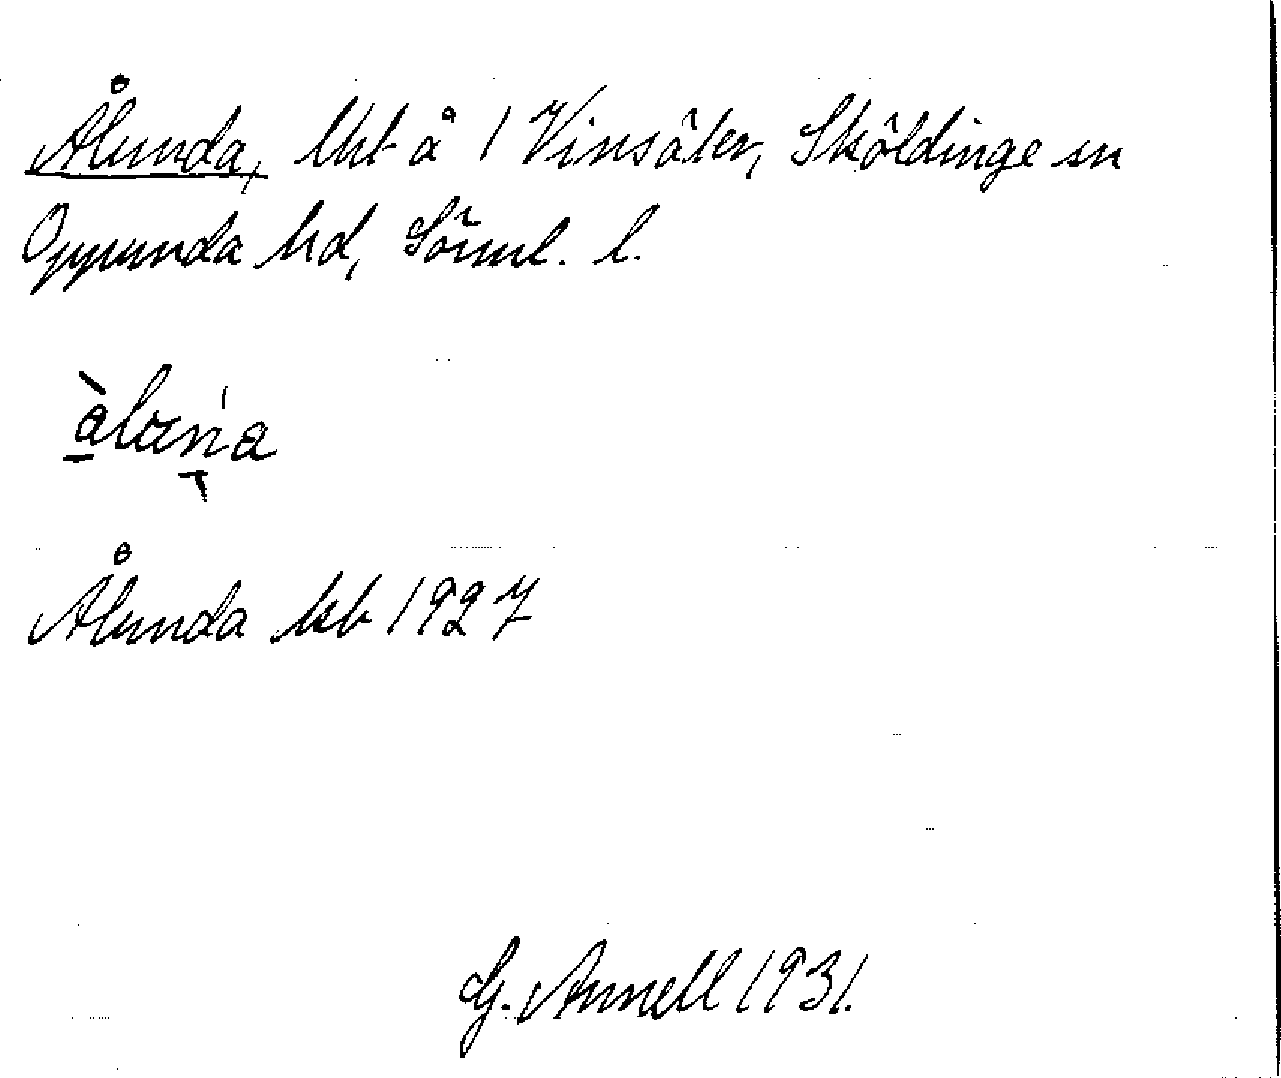 Ålunda, lht å 1 Vinsäter, Sköldinge sn
Oppunda hd, Söml. l.
Ålunda kb 1927
G. Annell 1931.